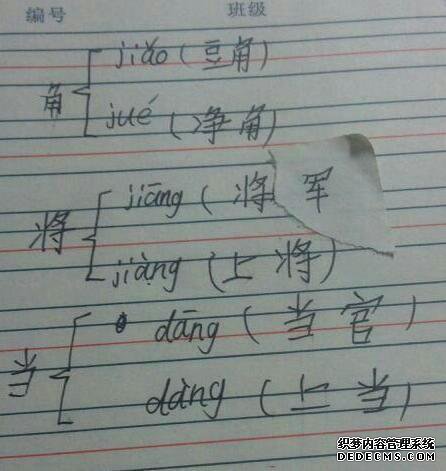 编号 班级
jiǎo (豆角)
角
jué (净角)
jiāng (将军
将
jiàng (上将)
dāng (当官)
当
dàng (上当)
织梦内容管理系统
DEDECMS.COM